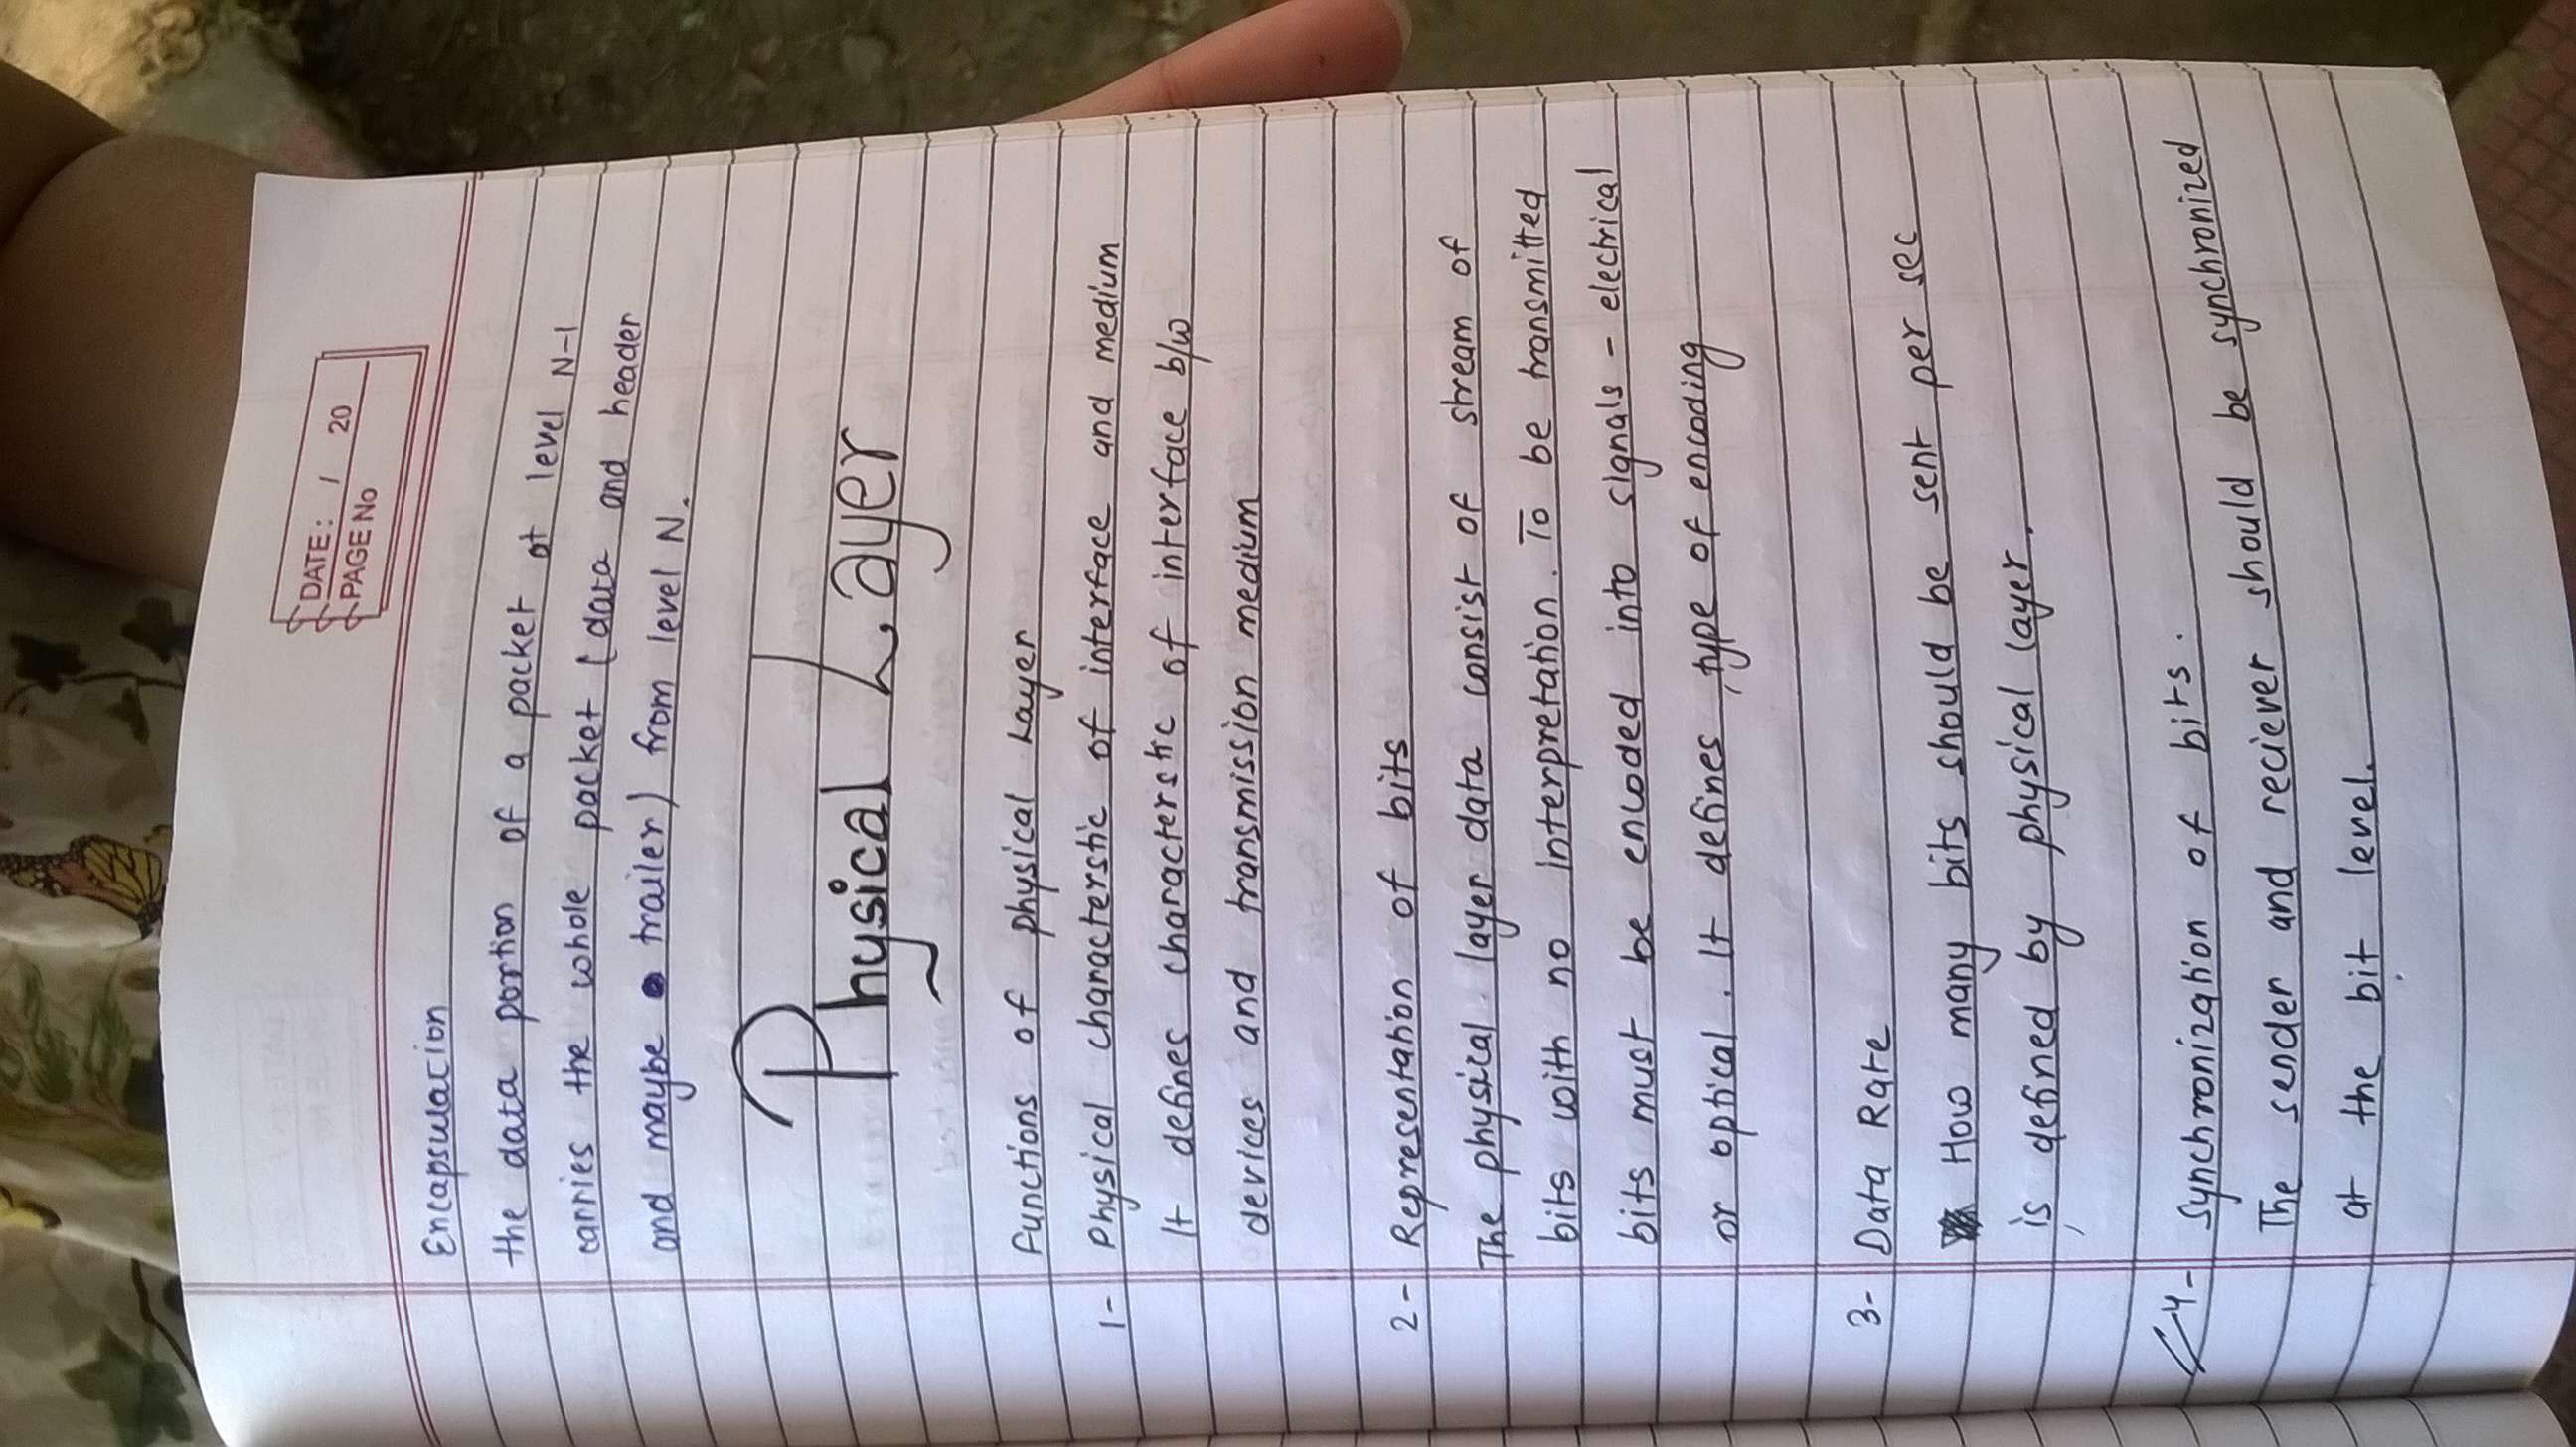 DATE: / 20
PAGE No
Encapsulation
the data portion of a packet at level N-1
carries the whole packet (data and header
and maybe trailer) from level N.
Physical Layer
Functions of physical Layer
1- Physical characterstic of interface and medium
It defines characterstic of interface b/w
devices and transmission medium
2- Representation of bits
The physical layer data consist of stream of
bits with no interpretation. To be transmitted
bits must be encoded into signals - electrical
or optical. It defines type of encoding
3- Data Rate
How many bits should be sent per sec
is defined by physical layer.
4- Synchronization of bits.
The sender and reciever should be synchronized
at the bit level.